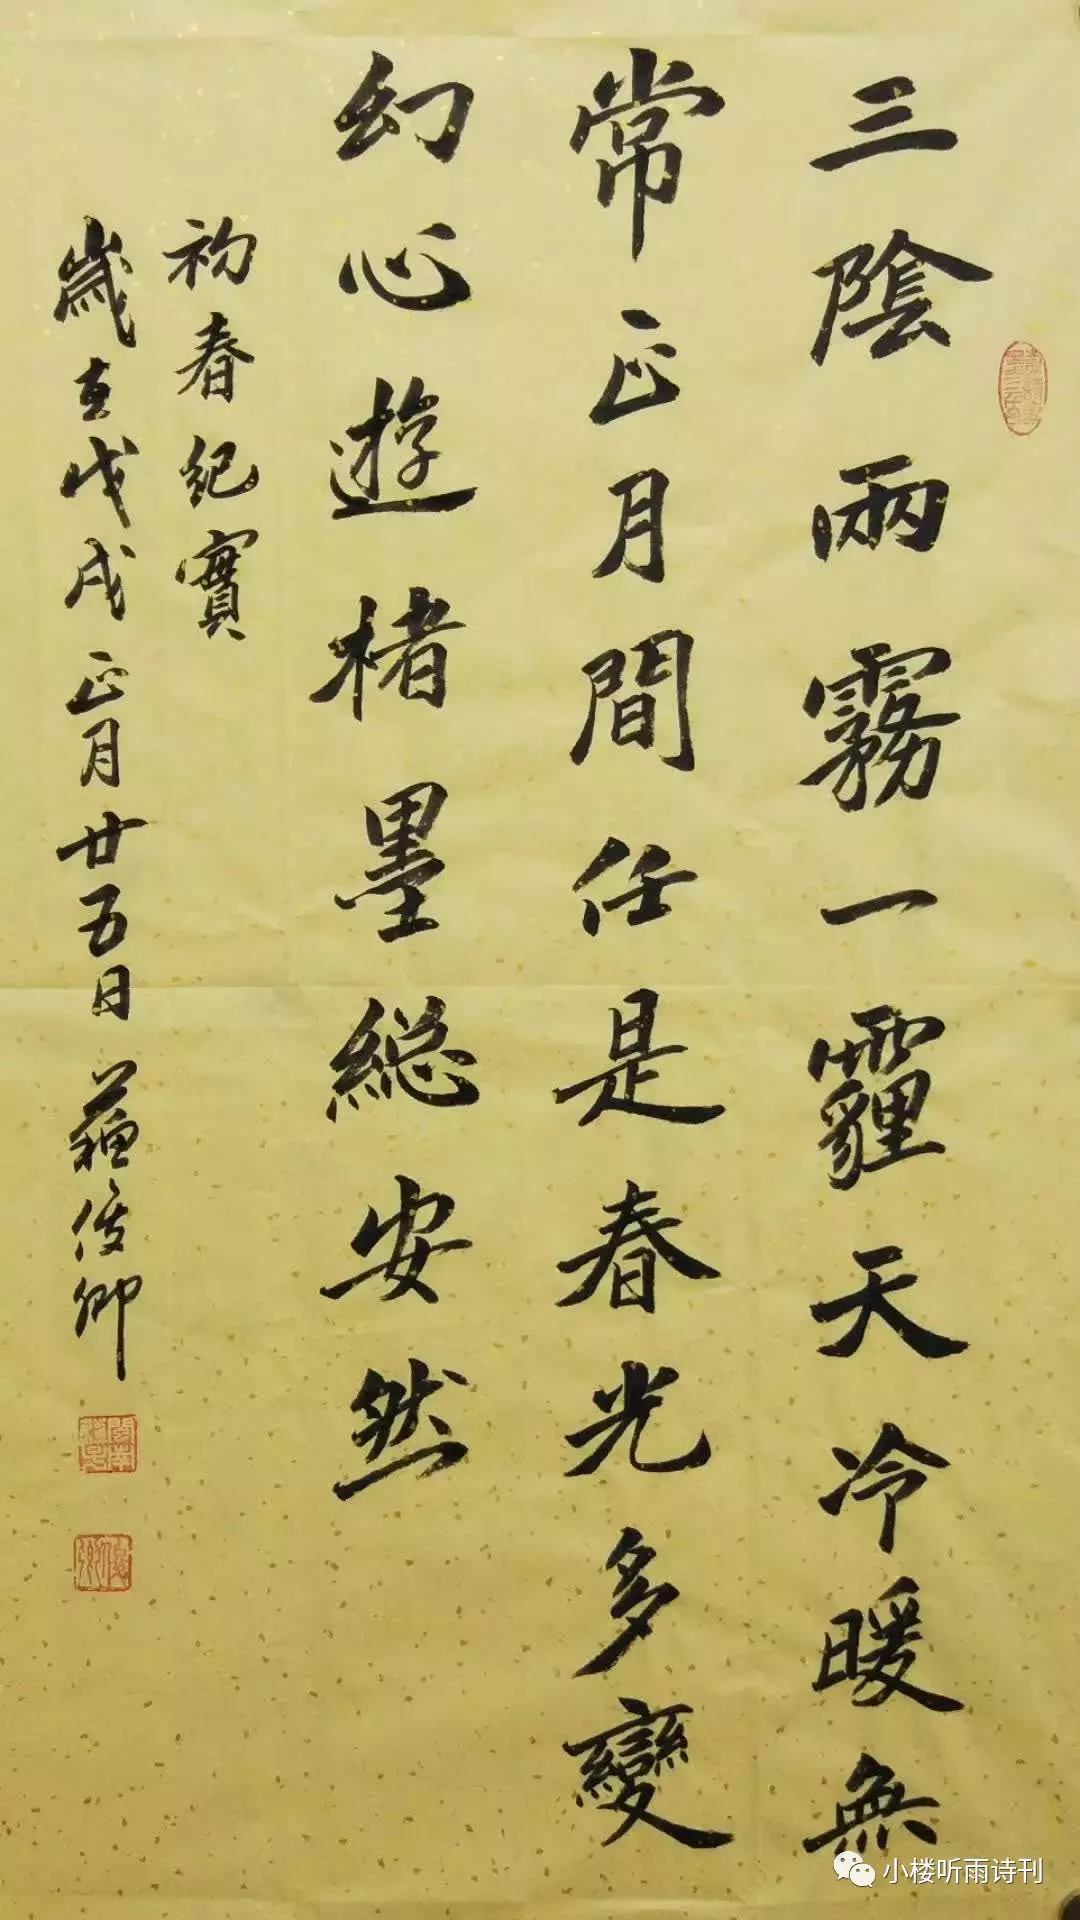 三陰兩霧一霾天冷暖無
常正月間任是春光多變
幻心遊楮墨總安然
初春紀實
歲在戊戌正月廿五日蘇俊卿
小楼听雨诗刊